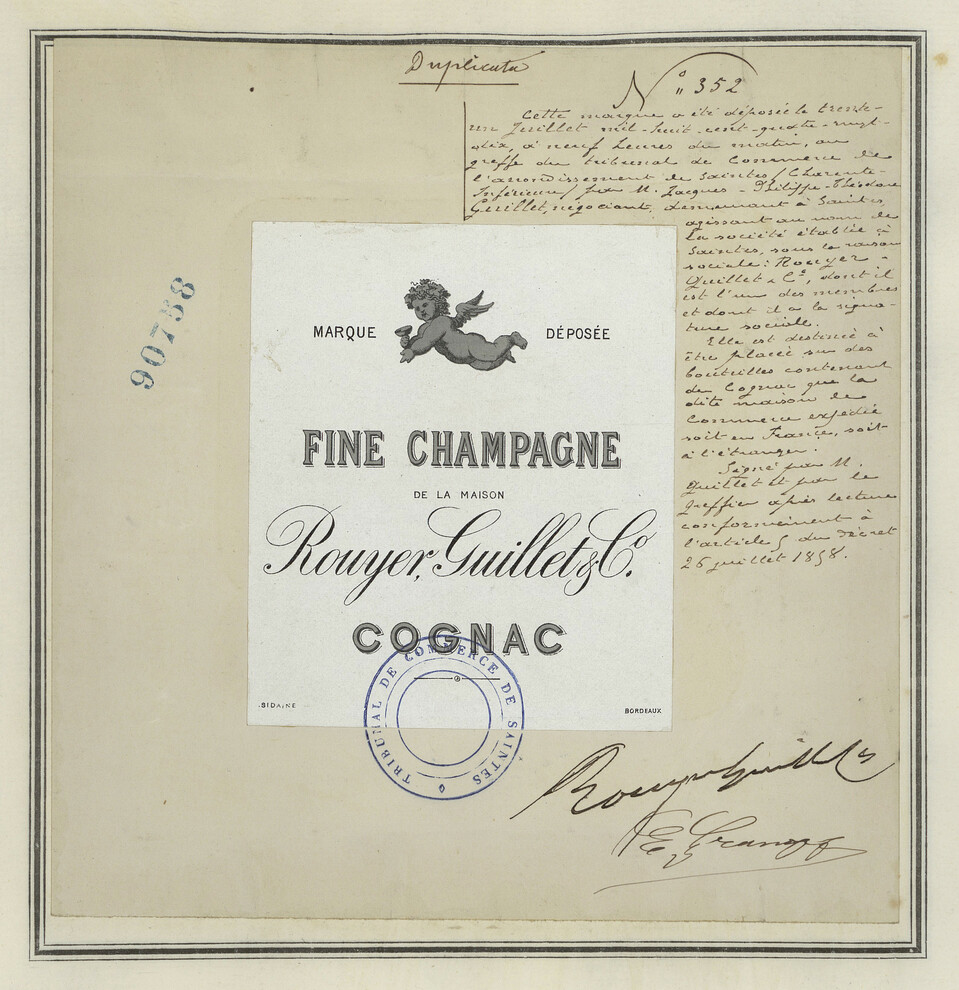 Duplicata
N° 352
Cette marque a été déposée le trente-
un Juillet mil-huit-cent-quatre-vingt-
dix, à neuf heures du matin, au
greffe du tribunal de Commerce de
l'arrondissement de Saintes (Charente-
Inférieure) par M. Jacques-Philippe-Théodore
Guillet, négociant, demeurant à Saintes,
agissant au nom de
la société établie à
Saintes, sous la raison
sociale: Rouyer-
Guillet & Cⁱᵉ, dont il
est l'un des membres
et dont il a la signa-
ture sociale.
Elle est destinée à
être placée sur des
bouteilles contenant
du Cognac que la
dite maison de
Commerce expédie
soit en France, soit
à l'étranger.
Signé par M.
Guillet et par le
greffier après lecture
conformément à
l'article 5 du décret
26 juillet 1858.
90758
MARQUE DÉPOSÉE
FINE CHAMPAGNE
DE LA MAISON
Rouyer, Guillet & Cº.
COGNAC
SIDAINE BORDEAUX
TRIBUNAL DE COMMERCE DE SAINTES
Rouyer Guillet &